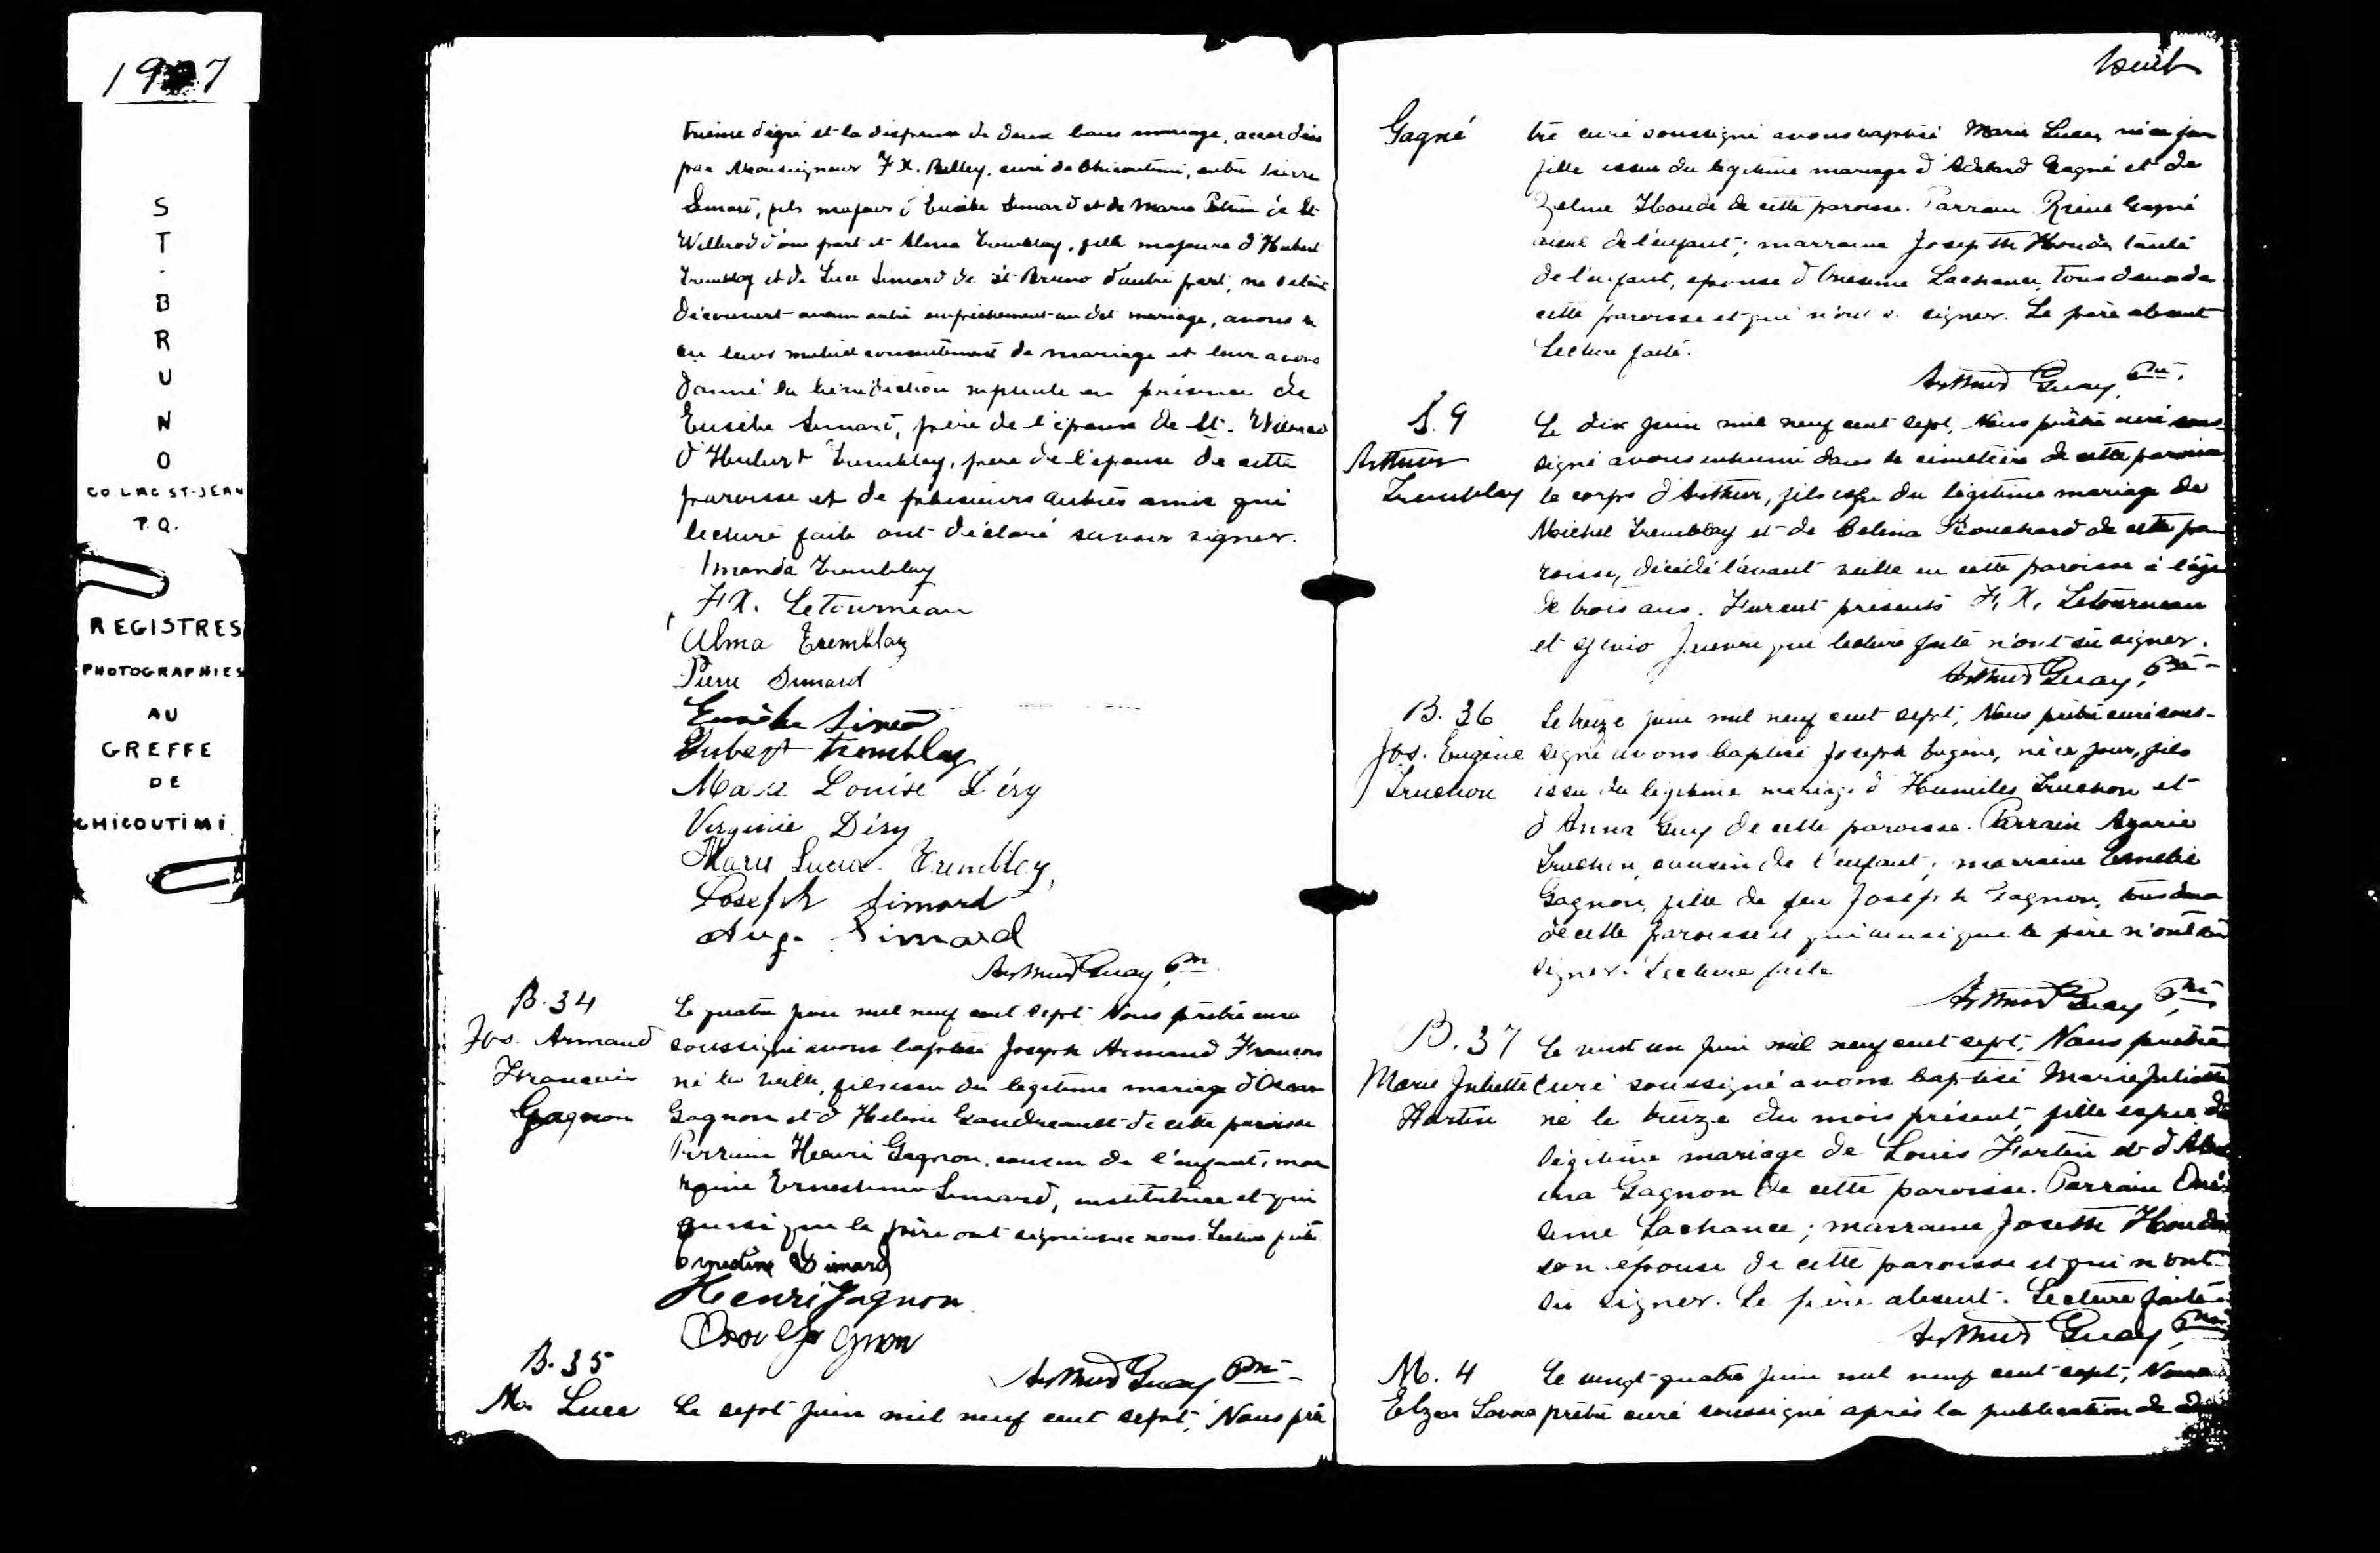 1907
S
T
.
B
R
U
N
O
CO LAC ST-JEAN
P.Q.
REGISTRES
PHOTOGRAPHIES
AU
GREFFE
DE
CHICOUTIMI
degré et la dispense de deux bans mariage, accordées
par Monseigneur F X. Belley, curé de Chicoutimi, entre Pierre
Simard, fils majeur d'Eusèbe Simard et de Marie de St
Wilbrod d'une part et Alma Tremblay, fille majeure d'Hubert
Tremblay et de Luce Simard de St Bruno d'autre part, ne s'étant
découvert aucun autre empêchement au dit mariage, avons
eu leur mutuel consentement de mariage et leur avons
donné la bénédiction nuptiale en présence de
Eusèbe Simard, père de l'époux de St.
d'Hubert Tremblay, père de l'épouse de cette
paroisse et de plusieurs autres amis qui
lecture faite ont déclaré savoir signer.
Amanda Tremblay
F X. Letourneau
Alma Tremblay
Pierre Simard
Eusèbe Simard
Hubert Tremblay
Marie Louise Déry
Virginie Déry
Marie Lucia Tremblay,
Joseph Simard
Aug. Simard
Arthur Guay Ptre
B. 34
Jos. Armand
François
Gagnon
Le quatre juin mil neuf cent sept Nous prêtre curé
soussigné avons baptisé Joseph Armand François
né la veille, fils issu du légitime mariage d'Oscar
Gagnon et d'Helene Gaudreault de cette paroisse
Parrain Henri Gagnon, cousin de l'enfant, mar
raine Ernestine Simard, institutrice et qui
aussi que le père ont signé avec nous. Lecture faite
Ernestine Simard
Henri Gagnon
Oscar Gagnon
Arthur Guay Ptre
B. 35
Ma Luce
Le sept juin mil neuf cent sept, Nous prê
huit
Gagné
tre curé soussigné avons baptisé Marie Luce, née ce jour
fille issue du légitime mariage d'Adélard Gagné et de
Zelme Houde de cette paroisse. Parrain Gagné
aieul de l'enfant; marraine Joseph Houde, tante
de l'enfant, épouse d'Onesime Lachance, tous deux de
cette paroisse et qui n'ont su signer. Le père absent
Lecture faite.
Arthur Guay, Ptre.
S. 9
Arthur
Tremblay
Le dix juin mil neuf cent sept, Nous prêtre curé sous-
signé avons inhumé dans le cimetière de cette paroisse
le corps d'Arthur, fils issu du légitime mariage de
Michel Tremblay et de Celina Bouchard de cette pa
roisse, décédé l'avant veille en cette paroisse à l'âge
de trois ans. Furent présents F. X. Letourneau
et qui lecture faite n'ont su signer.
Arthur Guay, Ptre
B. 36
Jos. Eugène
Truchon
Le treize juin mil neuf cent sept, Nous prêtre curé sous-
signé avons baptisé Joseph Eugène, né ce jour, fils
issu du légitime mariage d'Humiles Truchon et
d'Anna Guy de cette paroisse. Parrain Azarie
Truchon, cousin de l'enfant; marraine Emelie
Gagnon, fille de feu Joseph Gagnon, tous deux
de cette paroisse et qui ainsi que le père n'ont su
signer. Lecture faite
Arthur Guay Ptre
B. 37
Marie Juliette
Fortin
Le vingt un juin mil neuf cent sept, Nous prêtre
curé soussigné avons baptisé Marie Juliette
né le treize du mois présent, fille issue du
légitime mariage de Louis Fortin et d'Alex
ina Gagnon de cette paroisse. Parrain Oné
sime Lachance; marraine Joseth Houde
son épouse de cette paroisse et qui n'ont
su signer. Le père absent. Lecture faite
Arthur Guay, Ptre
M. 4
Elzear
Le vingt-quatre juin mil neuf cent sept, Nous
prêtre curé soussigné après la publication de